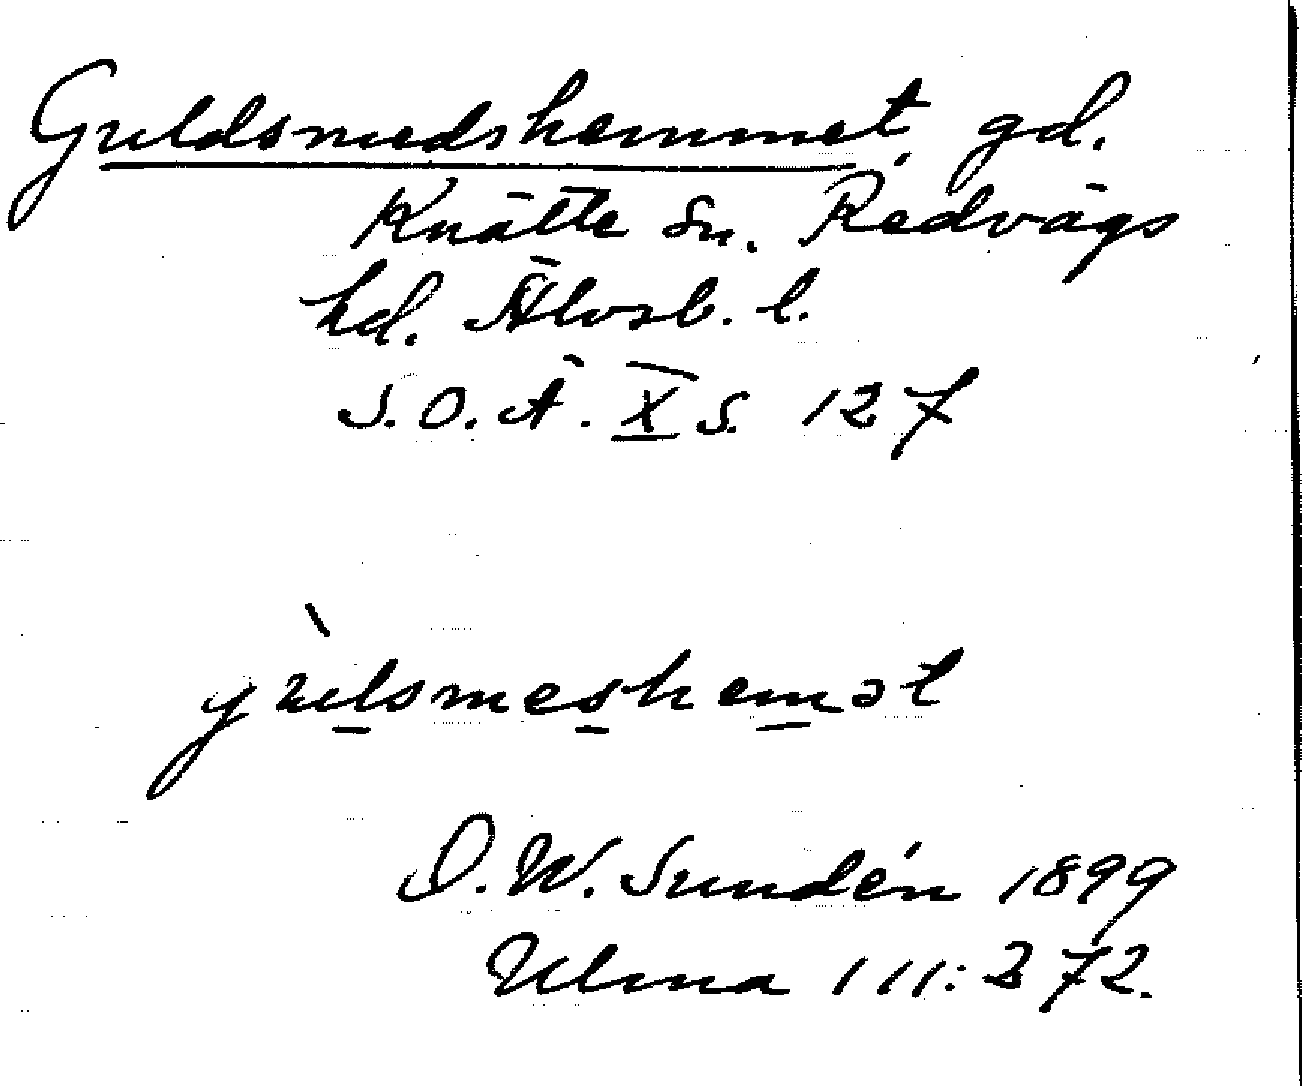 Guldsmedshemmet, gd.
Knätte sn. Redvägs
hd. Älvsb. l.
S. O. Ä. X s. 127
gulsmeshemət
D. W. Sundén 1899
Ulma 111: 372.